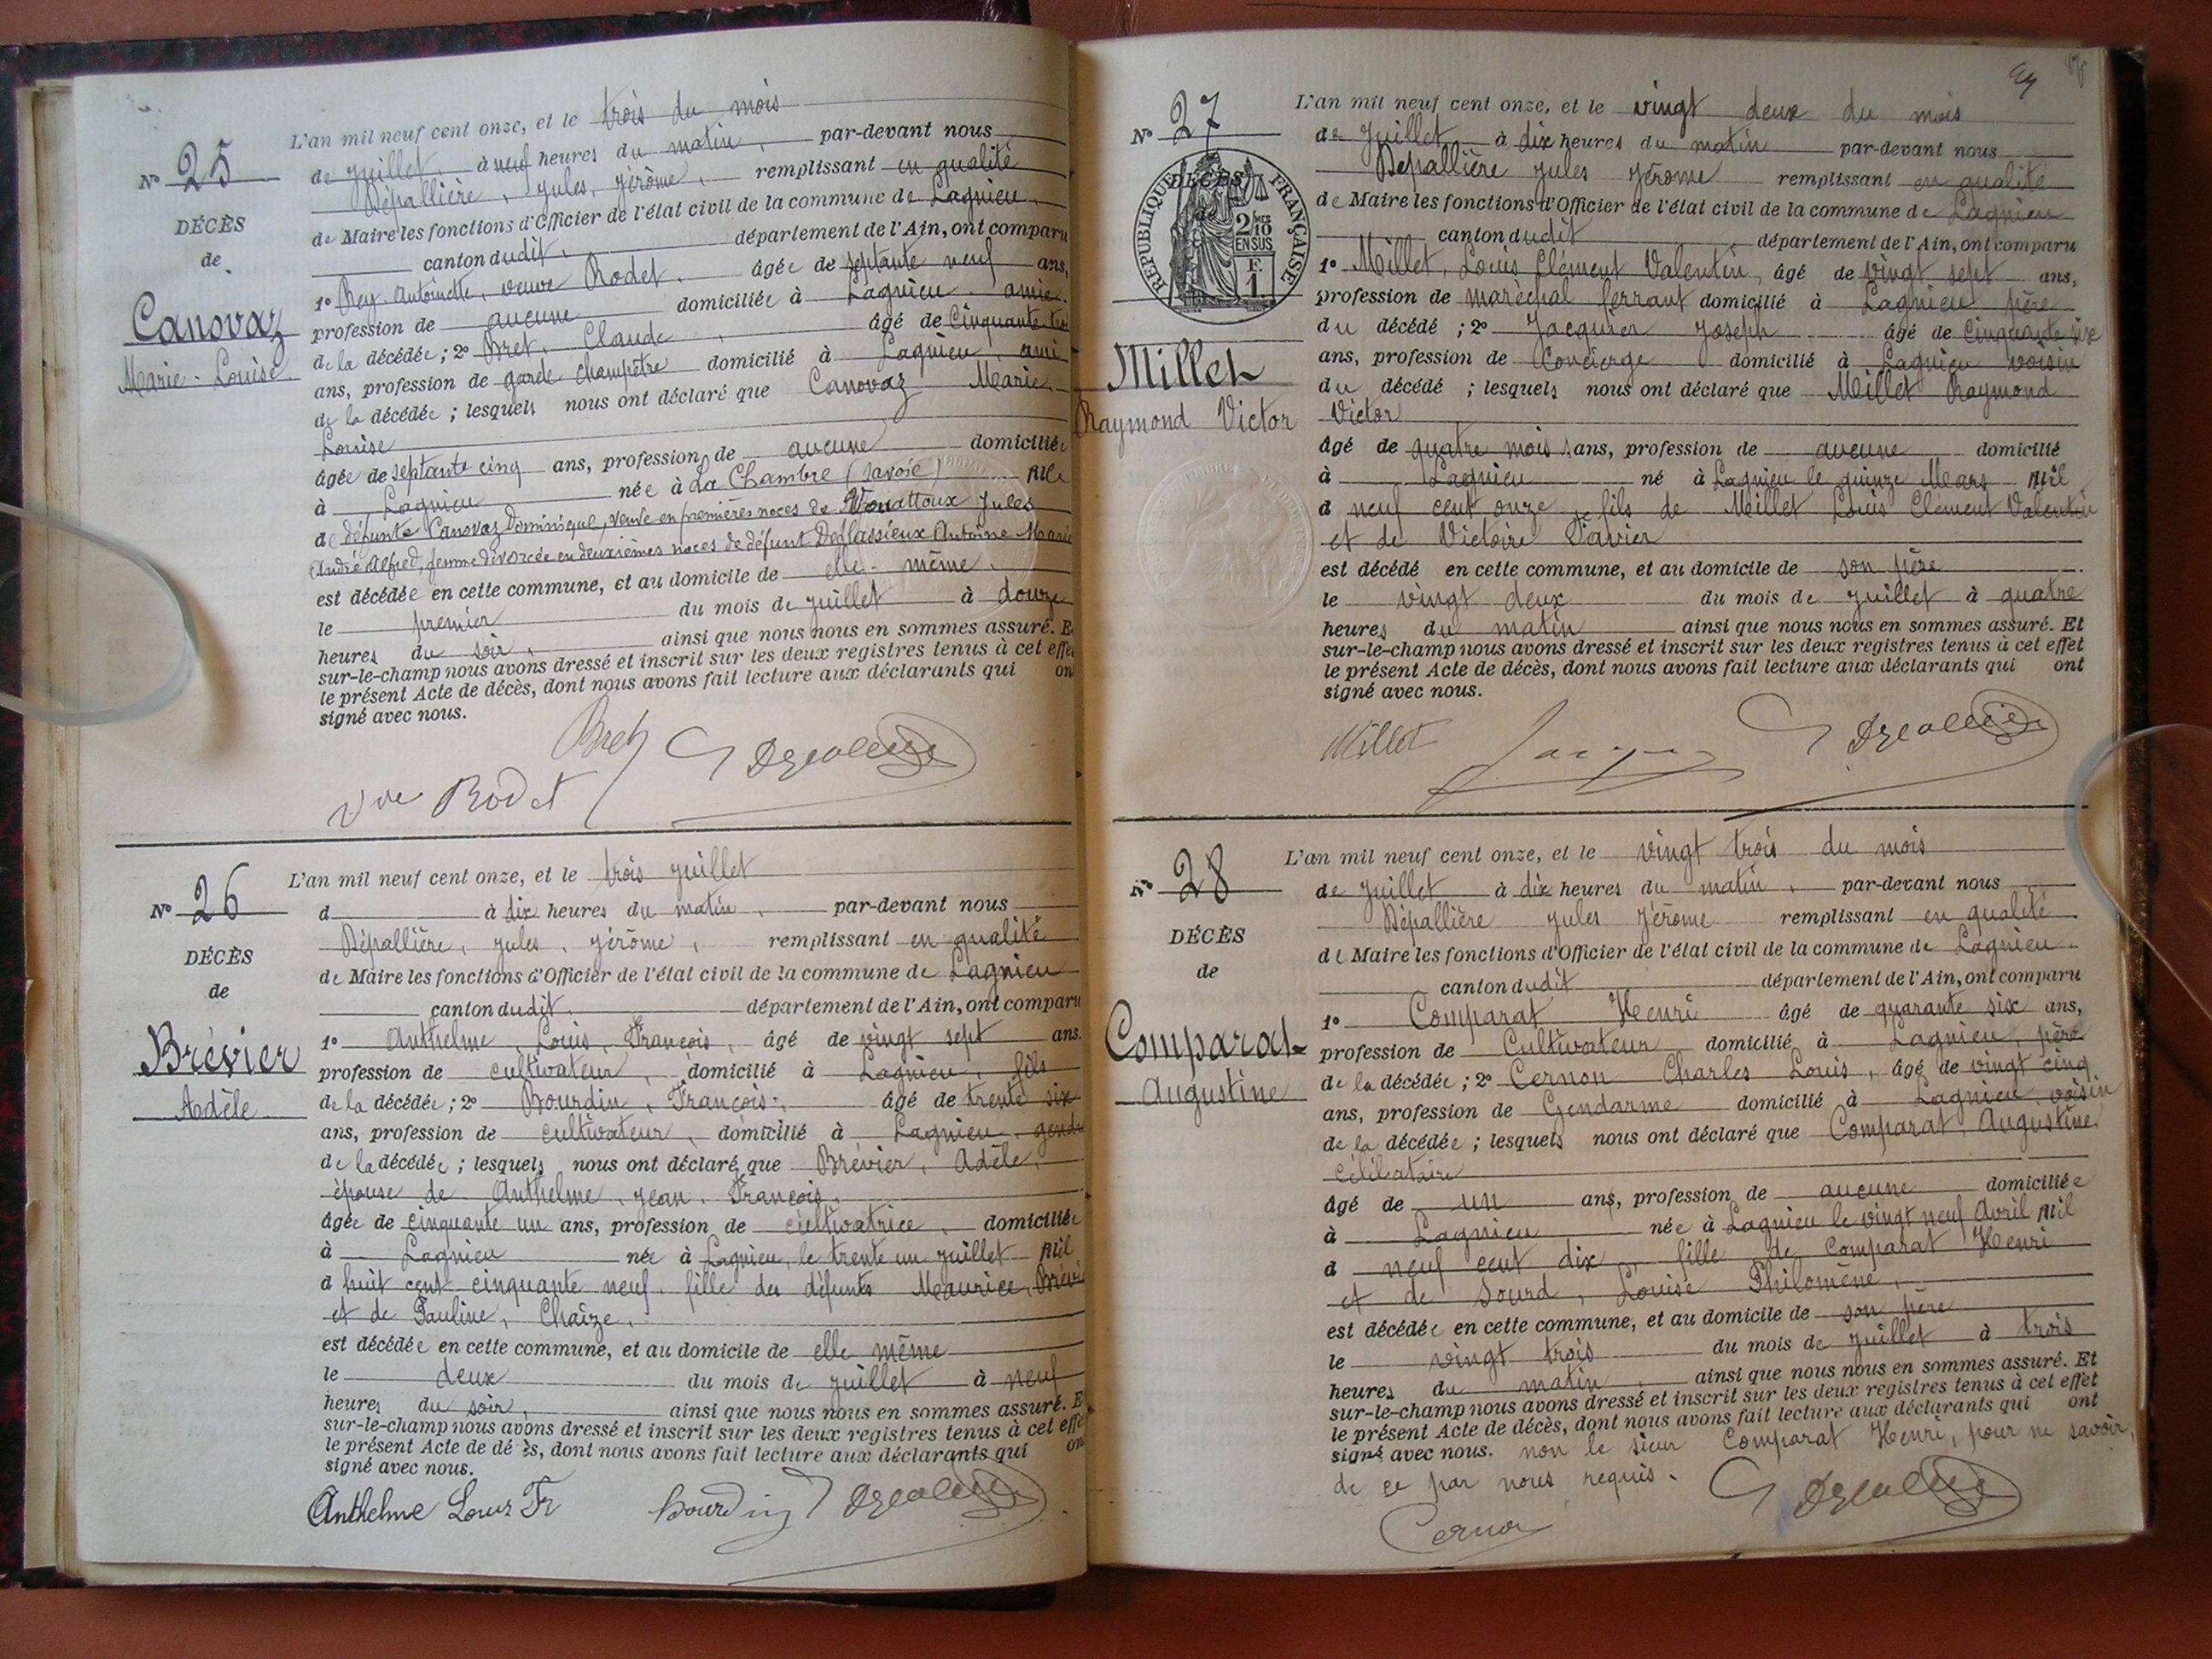 N° 25
DÉCÈS
de
Canovaz
Marie-Louise
L'an mil neuf cent onze, et le trois du mois
de Juillet, à neuf heures du matin, par-devant nous
Dépallière, Jules, Jérôme, remplissant en qualité
de Maire les fonctions d'Officier de l'état civil de la commune de Lagnieu,
canton dudit, département de l'Ain, ont comparu
1° Rey Antoinette, veuve Rodet, âgée de septante neuf ans,
profession de aucune domiciliée à Lagnieu, amie
de la décédée; 2° Bret, Claude, âgé de Cinquante
ans, profession de garde champêtre domicilié à Lagnieu, ami
de la décédée; lesquels nous ont déclaré que Canovaz Marie
Louise
âgée de septante cinq ans, profession de aucune domiciliée
à Lagnieu née à La Chambre (Savoie) fille
de défunts Canovaz Dominique, veuve en premières noces de Jules
André Alfred, femme divorcée en deuxièmes noces de défunt Deflassieux Antoine Marie
est décédée en cette commune, et au domicile de elle-même.
le premier du mois de juillet à douze
heures du soir, ainsi que nous nous en sommes assuré. E
sur-le-champ nous avons dressé et inscrit sur les deux registres tenus à cet effet
le présent Acte de décès, dont nous avons fait lecture aux déclarants qui on
signé avec nous.
Bret
Vve Rodet
N° 26
DÉCÈS
de
Brévier
Adèle
L'an mil neuf cent onze, et le trois juillet
d à dix heures du matin, par-devant nous
Dépallière, Jules, Jérôme, remplissant en qualité
de Maire les fonctions d'Officier de l'état civil de la commune de Lagnieu
canton dudit. département de l'Ain, ont comparu
1° Anthelme, Louis, François, âgé de vingt sept ans.
profession de cultivateur, domicilié à Lagnieu, fils
de la décédée; 2° Bourdin, François, âgé de trente six
ans, profession de cultivateur, domicilié à Lagnieu, gendr
de la décédée; lesquels nous ont déclaré que Brévier, Adèle,
épouse de Anthelme, Jean, François.
âgée de cinquante un ans, profession de cultivatrice, domiciliée
à Lagnieu née à Lagnieu, le trente un juillet Mil
d huit cent cinquante neuf, fille des défunts Maurice, Brévi
et de Pauline, Chaize.
est décédée en cette commune, et au domicile de elle même
le deux du mois de juillet à neuf
heures du soir, ainsi que nous nous en sommes assuré. E
sur-le-champ nous avons dressé et inscrit sur les deux registres tenus à cet effe
le présent Acte de dé ès, dont nous avons fait lecture aux déclarants qui on
signé avec nous.
Anthelme Louis Fr Bourdin
44
N° 27
DÉCÈS
de
RÉPUBLIQUE FRANÇAISE
2/10 EN SUS
F. 1.
Millet
Raymond Victor
L'an mil neuf cent onze, et le vingt deux du mois
de Juillet à dix heures du matin par-devant nous
Dépallière Jules Jérôme remplissant en qualité
de Maire les fonctions d'Officier de l'état civil de la commune de Lagnieu
canton dudit département de l'Ain, ont comparu
1° Millet, Louis Clément Valentin, âgé de vingt sept ans,
profession de maréchal ferrant domicilié à Lagnieu père
du décédé; 2° Jacquier Joseph âgé de Cinquante six
ans, profession de Concierge domicilié à Lagnieu voisin
du décédé; lesquels nous ont déclaré que Millet Raymond
Victor
âgé de quatre mois ans, profession de aucune domicilié
à Lagnieu né à Lagnieu le quinze Mars Mil
d neuf cent onze, fils de Millet Louis Clément Valentin
et de Victoire Savier
est décédé en cette commune, et au domicile de son père
le vingt deux du mois de juillet à quatre
heures du matin ainsi que nous nous en sommes assuré. Et
sur-le-champ nous avons dressé et inscrit sur les deux registres tenus à cet effet
le présent Acte de décès, dont nous avons fait lecture aux déclarants qui ont
signé avec nous.
Millet
N° 28
DÉCÈS
de
Comparat
Augustine
L'an mil neuf cent onze, et le vingt trois du mois
de Juillet à dix heures du matin, par-devant nous
Dépallière Jules Jérôme remplissant en qualité
de Maire les fonctions d'Officier de l'état civil de la commune de Lagnieu
canton dudit département de l'Ain, ont comparu
1° Comparat Henri âgé de quarante six ans,
profession de Cultivateur domicilié à Lagnieu, père
de la décédée; 2° Cernon Charles Louis, âgé de vingt cinq
ans, profession de Gendarme domicilié à Lagnieu, voisin
de la décédée; lesquels nous ont déclaré que Comparat, Augustine
célibataire
âgé de un ans, profession de aucune domiciliée
à Lagnieu née à Lagnieu le vingt neuf Avril Mil
d neuf cent dix fille de Comparat Henri
et de Sourd, Louise Philomène,
est décédée en cette commune, et au domicile de son père
le vingt trois du mois de juillet à trois
heures du matin, ainsi que nous nous en sommes assuré. Et
sur-le-champ nous avons dressé et inscrit sur les deux registres tenus à cet effet
le présent Acte de décès, dont nous avons fait lecture aux déclarants qui ont
signé avec nous. non le sieur Comparat Henri, pour ne savoir,
de ce par nous requis.
Cernon